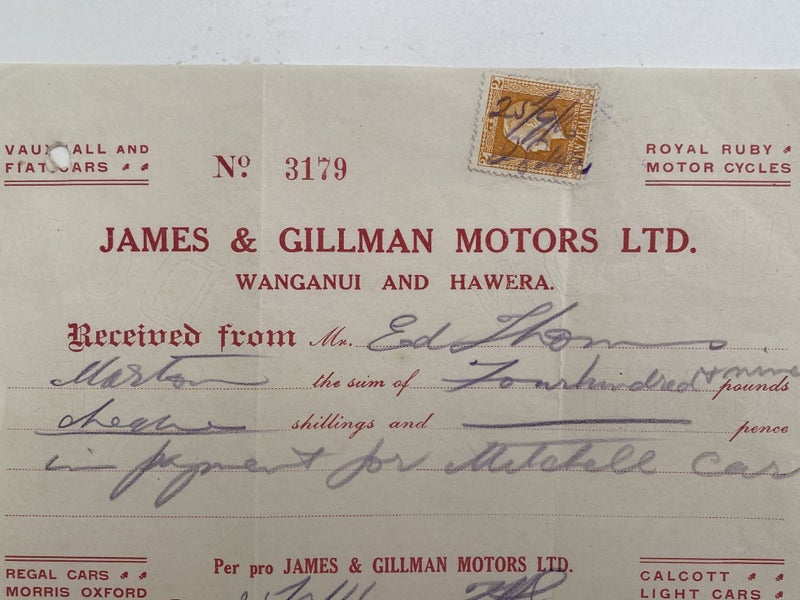 2 2
25/9/
NEW ZEALAND
VAUXHALL AND
FIAT CARS
ROYAL RUBY
MOTOR CYCLES
No 3179
JAMES & GILLMAN MOTORS LTD.
WANGANUI AND HAWERA.
Received from Mr. Ed Thoms
Marton the sum of Fourhundred & nine pounds
cheque shillings and pence
in payment for Mitchell Car
Per pro JAMES & GILLMAN MOTORS LTD.
REGAL CARS
MORRIS OXFORD
CALCOTT
LIGHT CARS